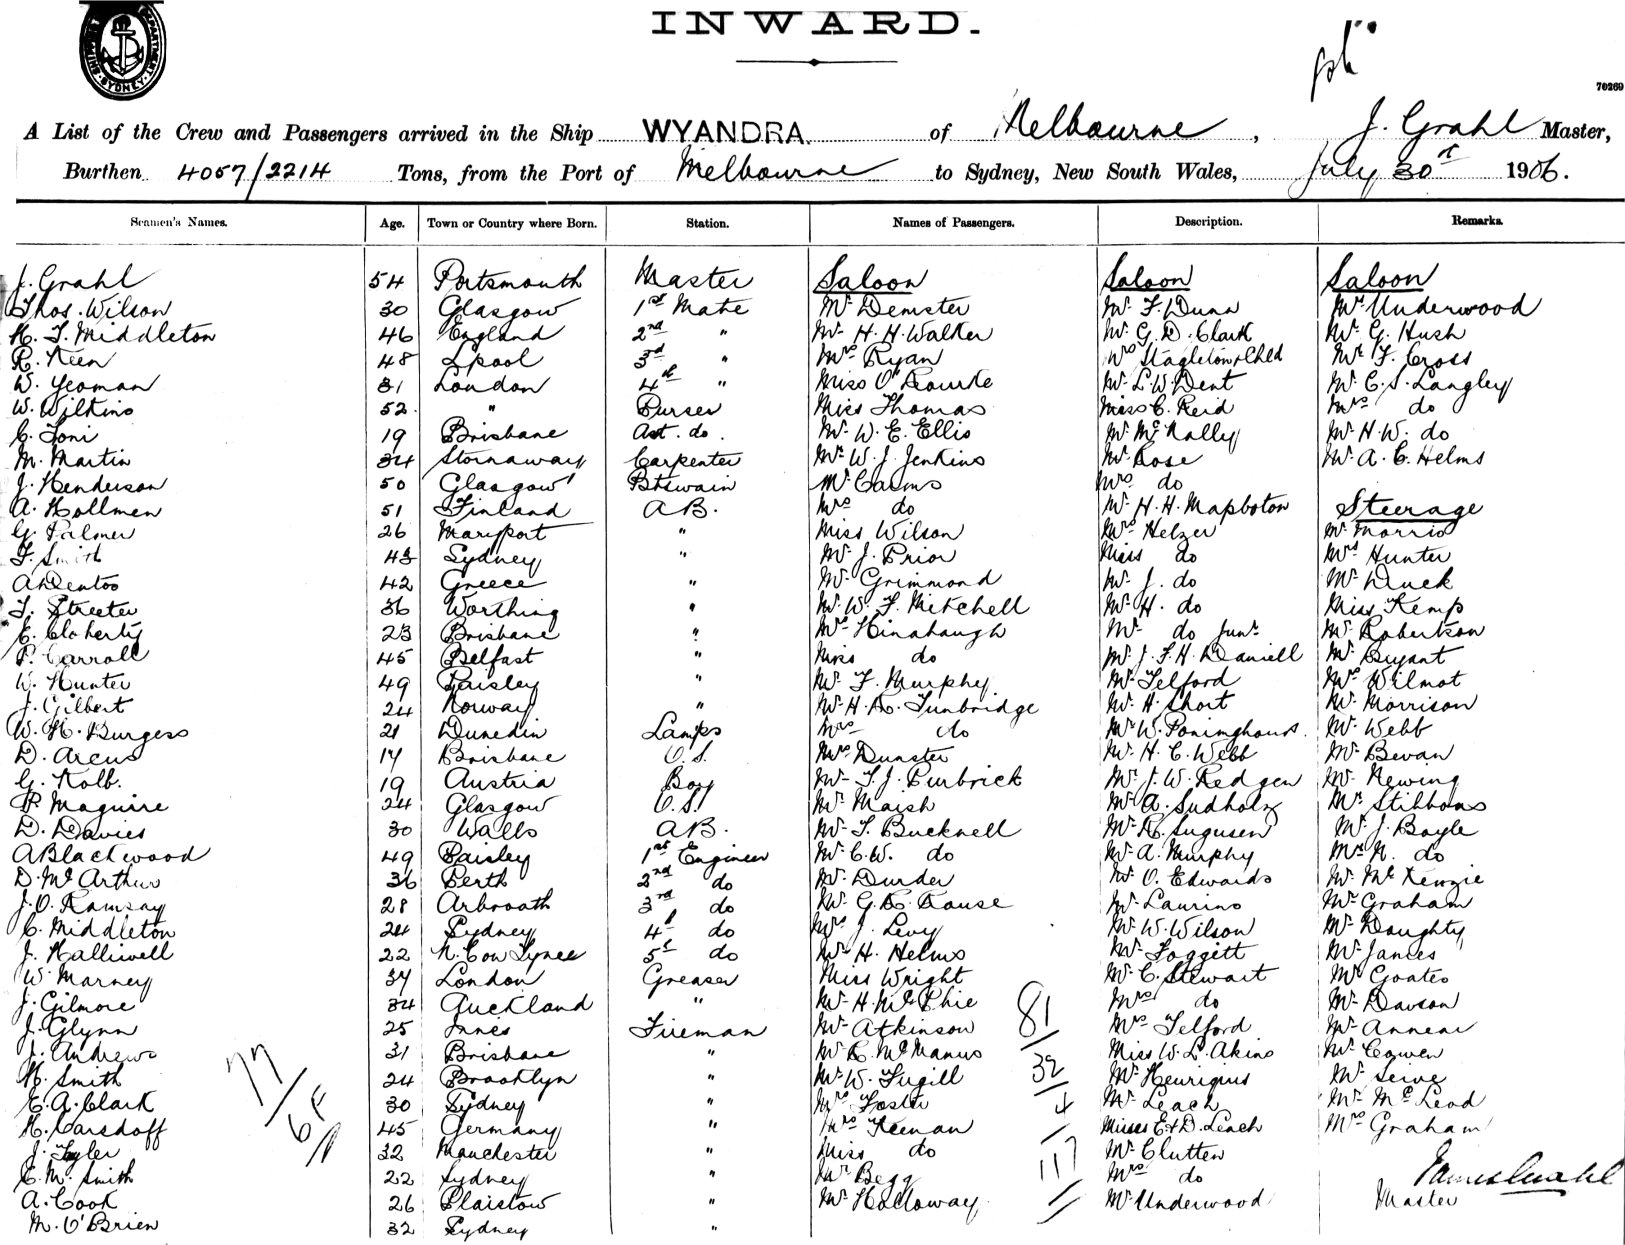 INWARD.
70269
A List of the Crew and Passengers arrived in the Ship WYANDRA of Melbourne, J. Grahl Master,
Burthen 4057/2214 Tons, from the Port of Melbourne to Sydney, New South Wales, July 30th 1906.
Seamen's Names. Age. Town or Country where Born. Station. Names of Passengers. Description. Remarks.
J. Grahl 54 Portsmouth Master Saloon Saloon Saloon
Thos. Wilson 30 Glasgow 1st Mate Mr Demster Mr F. Dunn Mr Underwood
H. T. Middleton 46 England 2nd " Mr H. H. Walker Mr G. D. Clark Mr G. Hush
R. Keen 48 Lpool 3rd " Mrs Ryan Mrs Stagleton & Chld Mr F. Cross
W. Yeoman 31 London 4th " Miss O'Rourke Mr L. W. Dent Mr C. S. Langley
W. Wilkins 52 " Purser Miss Thomas Miss C. Reid Mrs do
C. Toni 19 Brisbane Ast. do. Mr W. E. Ellis Mr McNally Mr H. W. do
M. Martin 34 Stornaway Carpenter Mr W. J. Jenkins Mr Rose Mr A. C. Helms
J. Henderson 50 Glasgow Btswain Mr Cairns Mrs do
A. Hollmen 51 Finland A B. Mrs do Mr H. H. Mapboton Steerage
G. Palmer 26 Maryport " Miss Wilson Mrs Helzer Mr Morris
F. Smith 43 Sydney " Mr J. Prior Miss do Mrs Hunter
A Dentos 42 Greece " Mr Grimmond Mr J. do Mr Duck
T. Streeter 36 Worthing " Mr W. F. Mitchell Mr H. do Miss Kemp
E. Cloherty 23 Brisbane " Mrs Hinahaugh Mr do Junr Mr Robertson
P. Carroll 45 Belfast " Miss do Mr J. F. H. Daniell Mr Bryant
W. Hunter 49 Paisley " Mr F. Murphy Mr Telford Mrs Wilmot
J. Gilbert 24 Norway " Mr H. R. Tunbridge Mr H. Short Mr Morrison
W. H. Burgess 21 Dunedin Lamps Mrs do Mr W. Poninghous. Mr Webb
D. Arcus 17 Brisbane O.S. Mrs Dunster Mr H. C. Webb Mr Bevan
G. Kolb. 19 Austria Boy Mr T. J. Purbrick Mr J. W. Redgen Mr Newing
P. Maguire 24 Glasgow O.S. Mr Maish Mr A. Sudholz Mr Stibbons
D. Davies 30 Walls A B. Mr T. Bucknell Mr R. Sugusen Mr J. Boyle
A Blackwood 49 Paisley 1st Engineer Mr C. W. do Mr A. Murphy Mr N. do
D. McArthur 36 Perth 2nd do Mr Durder Mr O. Edwards Mr McKenzie
J. O. Ramsay 28 Arbroath 3rd do Mr G. R. Rause Mr Laurino Mr Graham
C. Middleton 24 Sydney 4th do Mrs J. Levy Mr W. Wilson Mr Doughty
J. Halliwell 22 N. Cow Tynee 5th do Mr H. Helms Mr Foggett Mr James
W Marney 37 London Greaser Miss Wright Mr C. Stewart Mr Coates
J. Gilmore 34 Auckland " Mr H. McPhie 81 Mrs do Mr Davson
J. Glynn 25 Innes Fireman Mr Atkinson Mrs Telford Mr Annear
J. Andrews 31 Brisbane " Mr R. McManus Miss W. L. Akins Mr Cowen
77
H. Smith 24 Brooklyn " Mr W. Fugill 32 Mr Henriques Mr Seive
E. A. Clark 30 Sydney " Mrs Foster 4 Mr Leach Mr McLeod
6F
H. Carsdoff 45 Germany " Mrs Keenan Misses E & D. Leach Mrs Graham
J. Tyler 32 Manchester " Miss do 117 Mr Clutten
C. M. Smith 22 Sydney " Mr Begg Mrs do James Grahl
A. Cook 26 Plaistow " Mr Holloway Mr Underwood Master
M. O'Brien 32 Sydney "